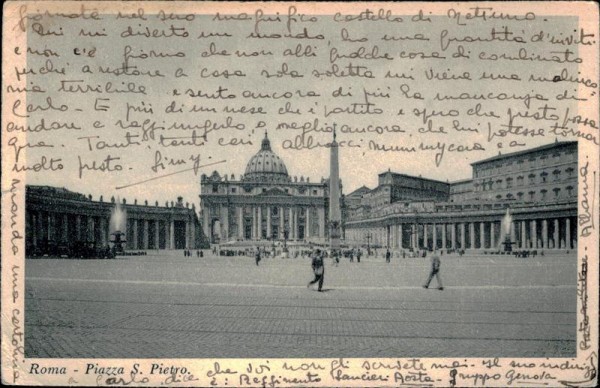 giornate nel suo magnifico castello di Nettuno.
Qui mi diverto un mondo ho una quantità d'inviti
e non c'è giorno che non abbi qualche cosa di combinato
perché a restare a casa sola soletta mi viene una malinco
nia terribile e sento ancora di più la mancanza di
Carlo - È più di un mese che è partito e spero che presto possa
andare a raggiungerlo, o meglio ancora, che lui potesse tornar
qua. Tanti, tanti cari abbracci mummy cara e a
molto presto. Jimy
Roma - Piazza S. Pietro.
mando una cartolina
a Carlo, dice che voi non gli scrivete mai - Il suo indiriz
è: Reggimento Lancieri Aosta - Gruppo Genova
Albania